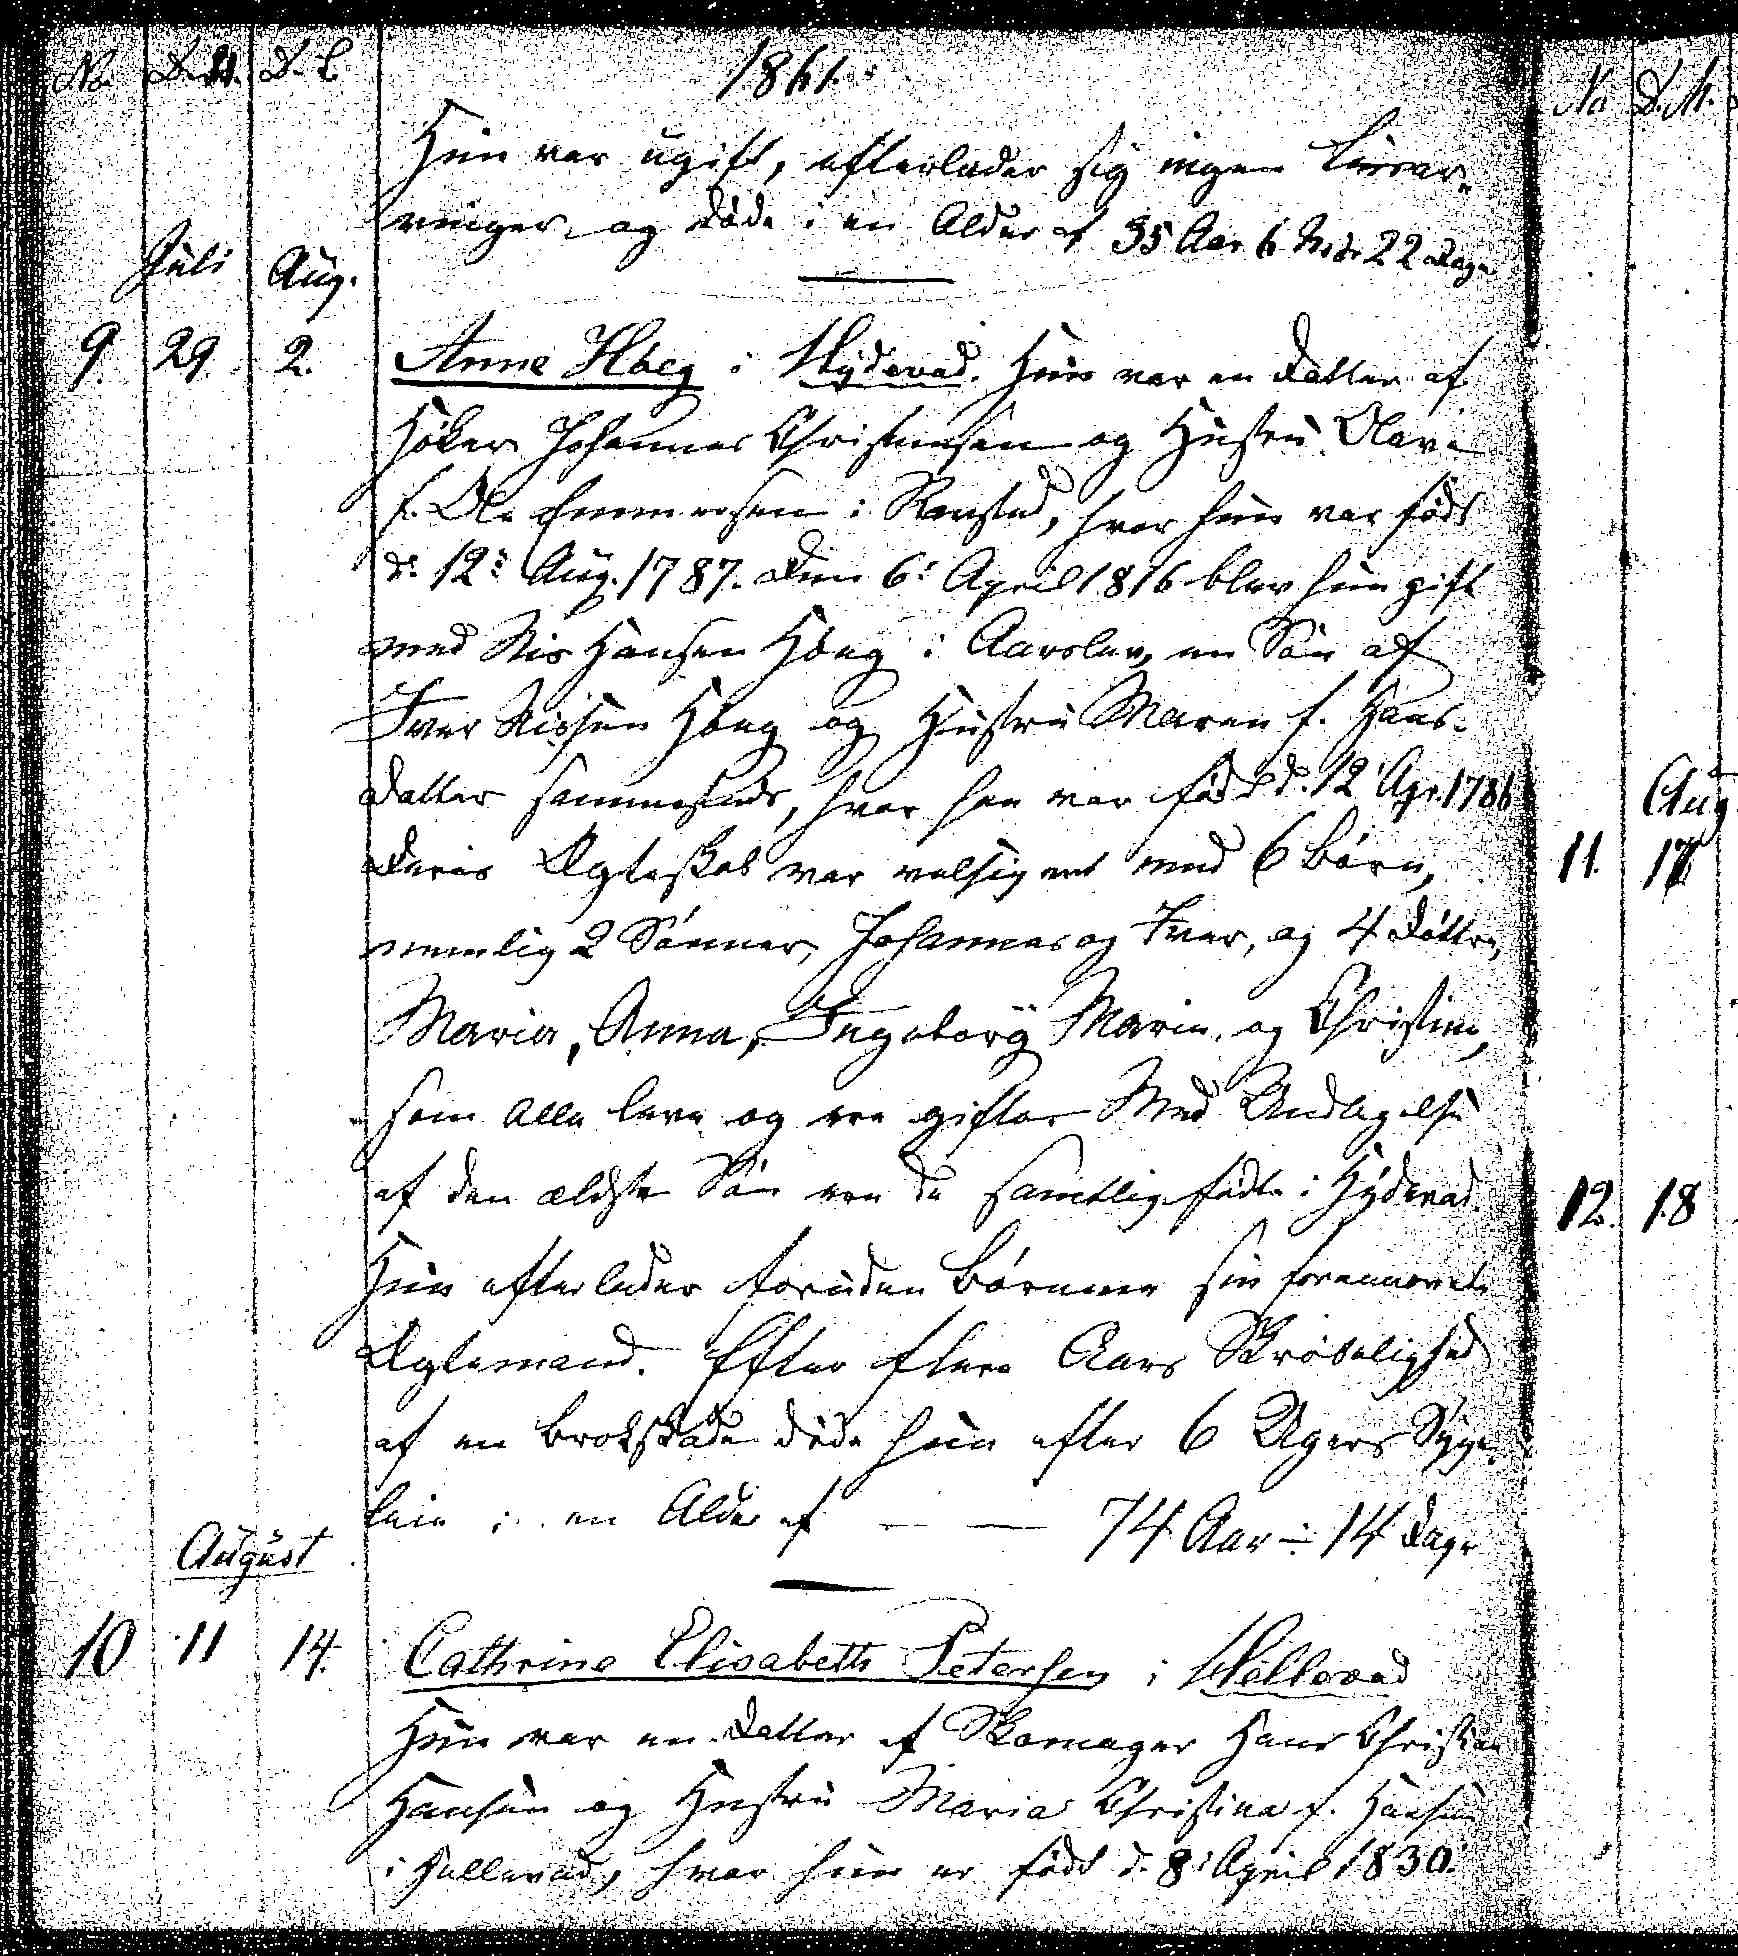 No. D. M. D. B. 1861.
Hun var ugift, efterlader sig ingen Livsar-
vinger og døde i en Alder af 35 Aar 6 Mdr 22 Dage
Juli Aug.
9. 29. 2. Anne Høeg i Hydevad. Hun var en Datter af
Høker Johannes Christensen og Hustru Clara
f. i hvor hun var født
d. 12. Aug. 1787. Den 6. April 1816 blev hun gift
med Nis Hansen Høeg i Aarslev, en Søn af
Iver Nissen Høeg og Hustru Maren f. Hans-
datter sammesteds, hvor han var født d. 12 Apr. 1786
Deres Ægteskab var velsignet med 6 Børn,
nemlig 2 Sønner, Johannes og Iver, og 4 Døttre,
Maria, Anna, Ingeborg Marie og Christine,
som alle leve og ere gifte. Med Undtagelse
af den ældste Søn ere de samtlig fødte i Hydevad.
Hun efterlader foruden Børnene sin fornævnte
Ægtemand. Efter flere Aars Skrøbelighed
af en Brokskade døde hun efter 6 Ugers Syge-
leie i en Alder af — — 74 Aar ÷ 14 Dage
August
10 11 14. Cathrine Elisabeth Petersen i Hellevad
Hun var en Datter af Skomager Hans Christian
Hansen og Hustru Maria Christina f. Hansen
i Hellevad, hvor hun er født d. 8. April 1830.
No D. M.
Aug
11. 17
12. 18